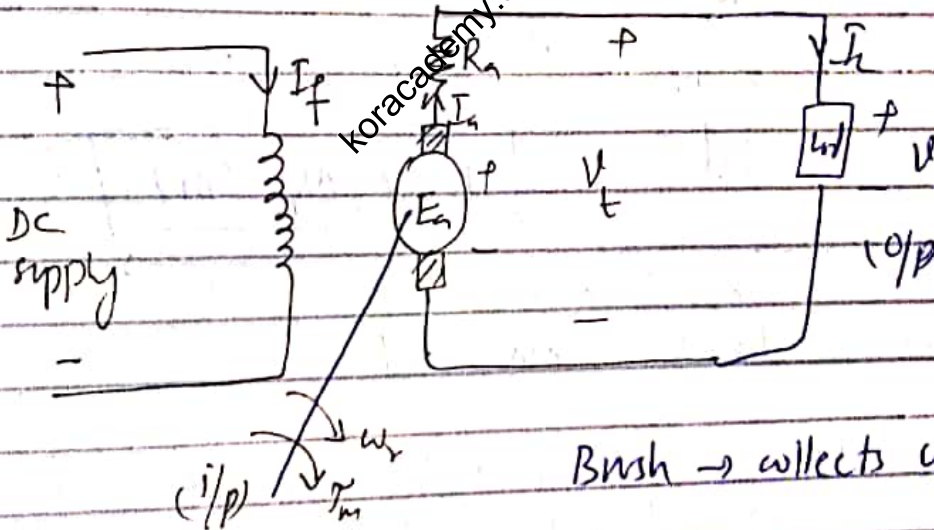 koracademy.
+
I_f
DC
supply
-
R_a
I_a
E_a
+
-
+
V_t
-
I_L
+
V
-
(o/p
(i/p)
ω_r
T_m
Brush → collects